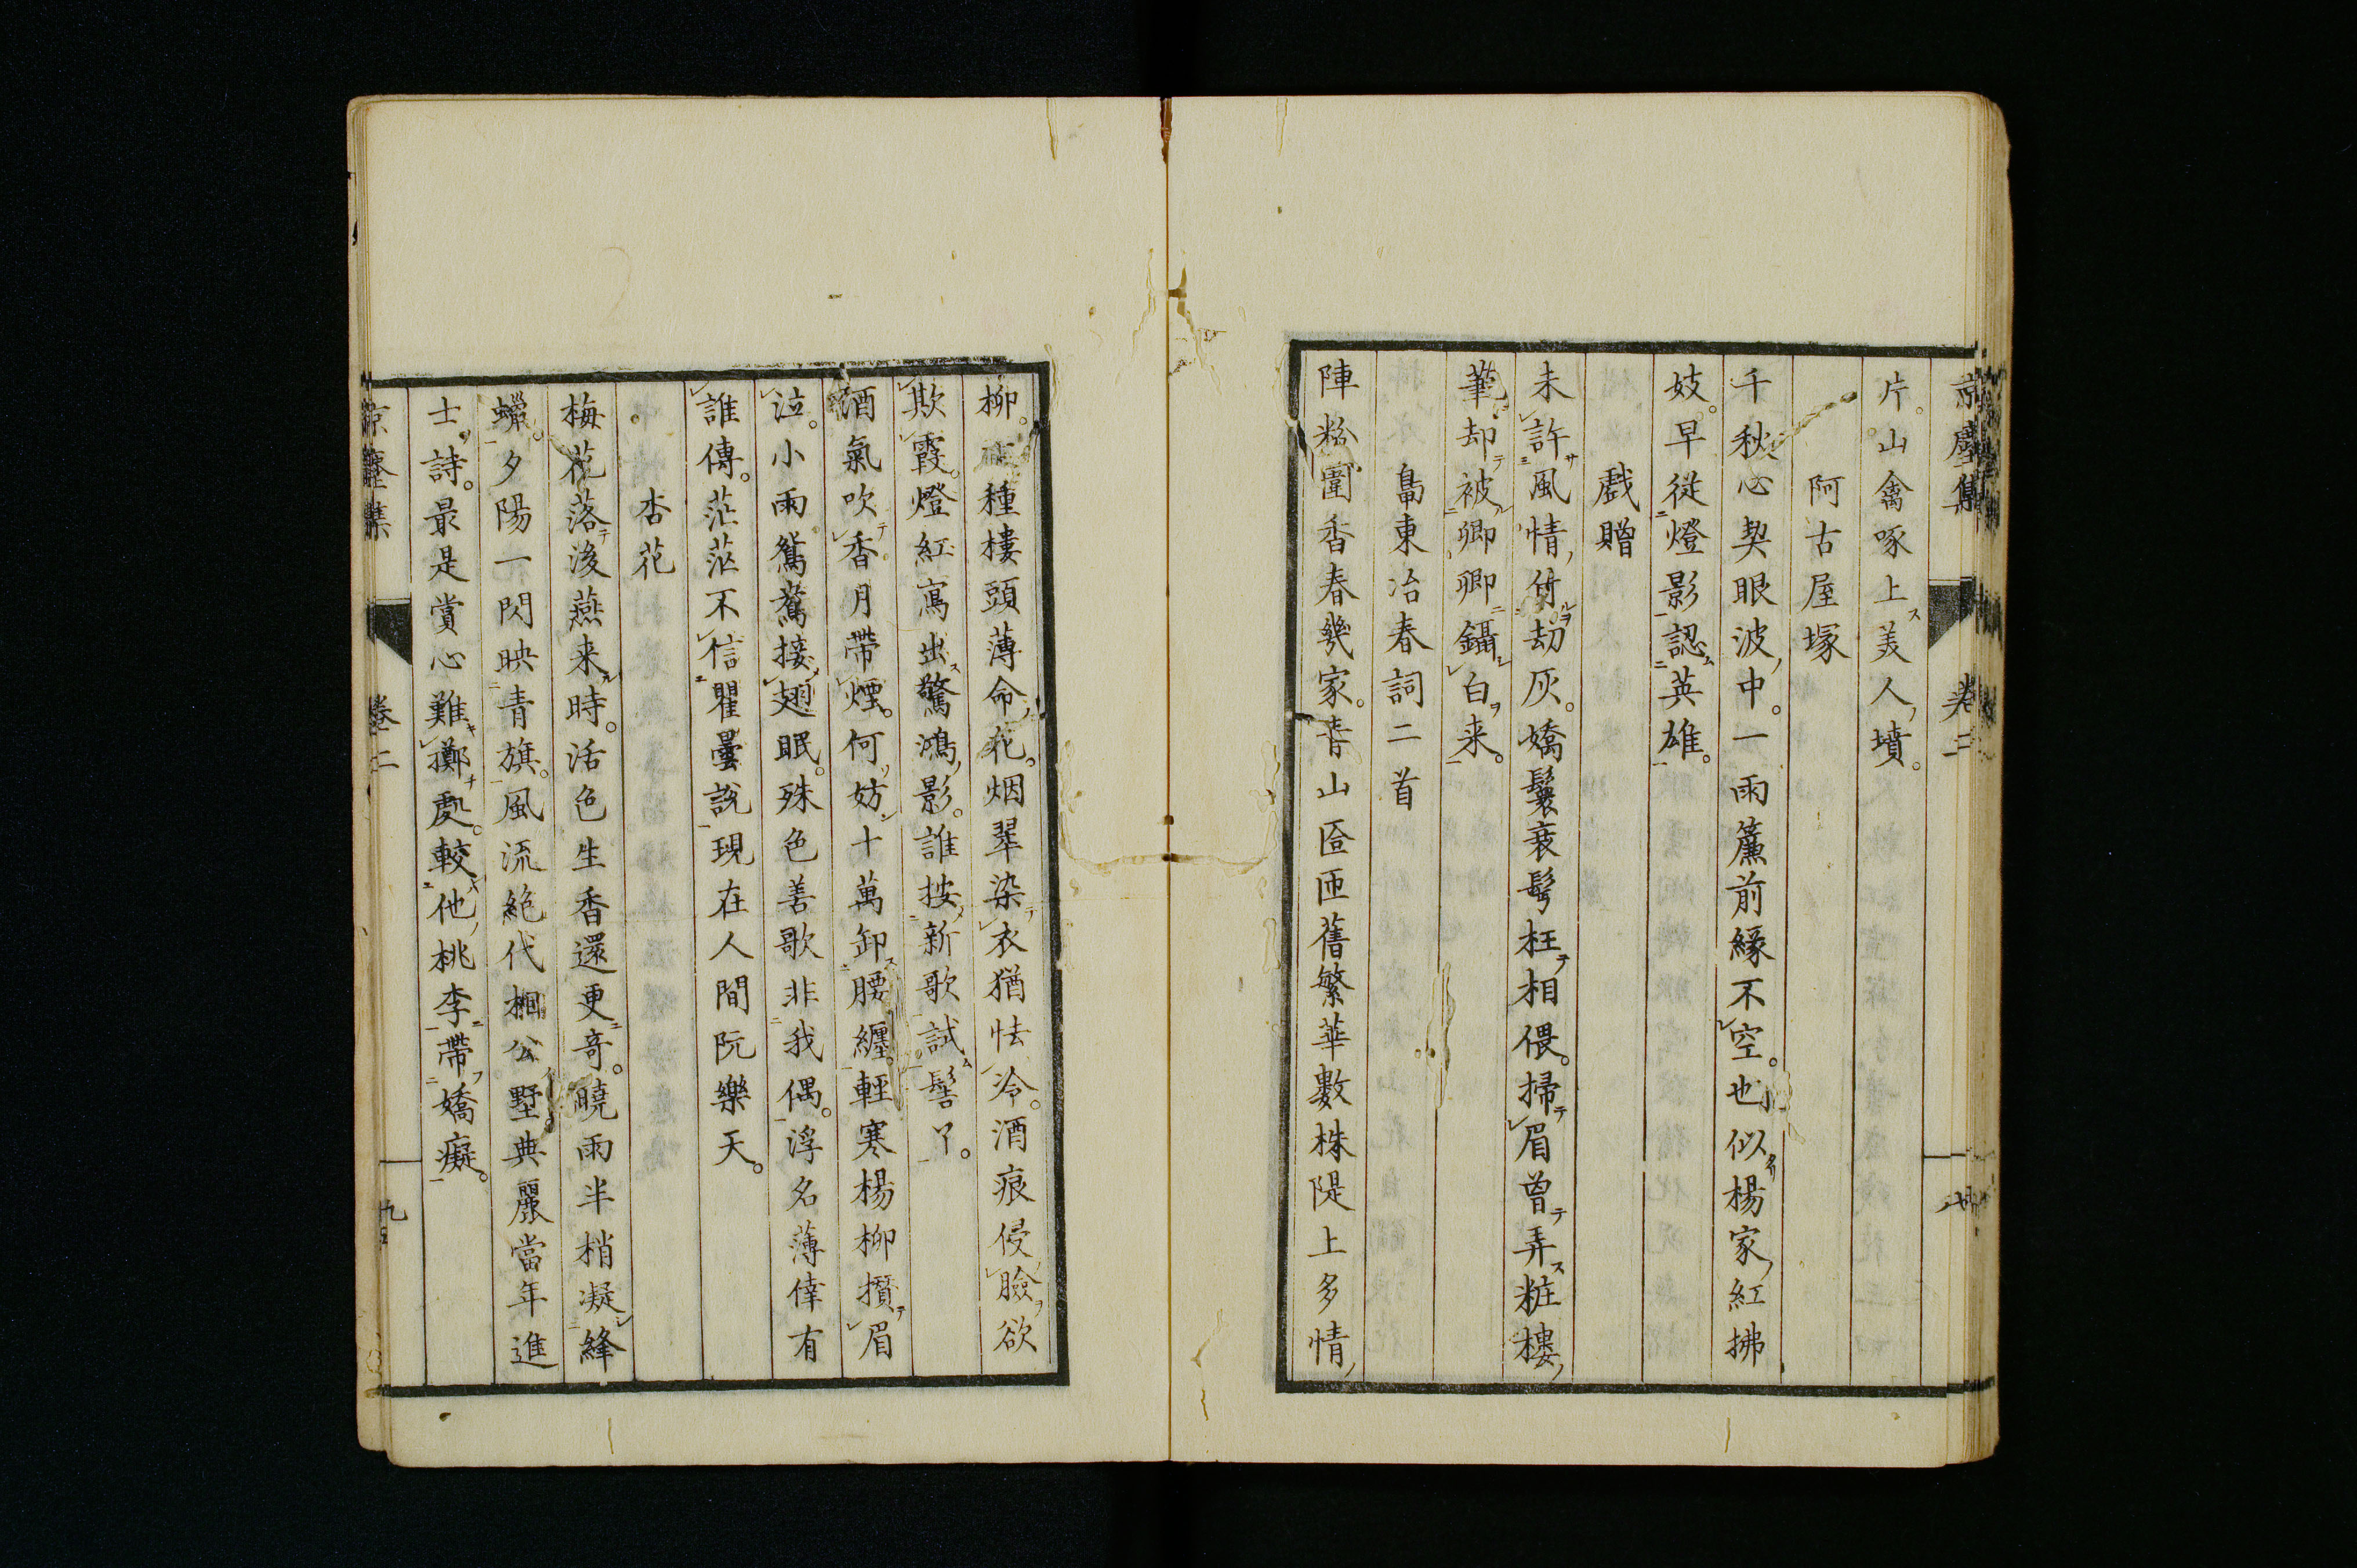 京塵集 卷二
片。山禽啄上美人墳。
阿古屋塚
千秋心契眼波中。一雨簾前緣不空。也似楊家紅拂
妓。早從燈影認英雄。
戲贈
未許風情付劫灰。嬌鬟衰髩枉相偎。掃眉曾弄粧樓
筆。却被卿卿鑷白来。
鳥東冶春詞二首
陣粉圍香春幾家。青山匼匝舊繁華數株隄上多情
柳。種樓頭薄命花。烟翠染衣猶怯冷。酒痕侵臉欲
欺霞。燈紅寫出驚鴻影。誰按新歌試髻丫。
酒氣吹香月帶煙。何妨十萬卸腰纏。輕寒楊柳攢眉
泣。小雨鴛鴦接翅眠。殊色善歌非我偶。浮名薄倖有
誰傳。茫茫不信瞿曇說現在人間阮樂天。
杏花
梅花落後燕来時。活色生香還更奇。曉雨半梢凝絳
蠟。夕陽一閃映青旗。風流絕代相公墅典麗當年進
士詩。最是賞心難擲處。較他桃李帶嬌癡。
京塵集 卷二 九